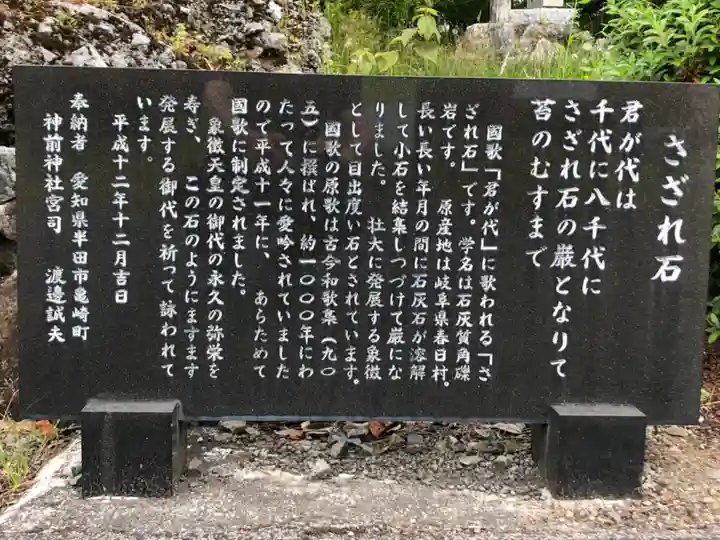 さざれ石
君が代は
千代に八千代に
さざれ石の巌となりて
苔のむすまで
國歌「君が代」に歌われる「さ
ざれ石」です。学名は石灰質角礫
岩です。　原産地は岐阜県春日村。
長い長い年月の間に石灰石が溶解
して小石を結集しつづけて巌にな
りました。　壮大に発展する象徴
として目出度い石とされています。
國歌の原歌は古今和歌集（九〇
五）に撰ばれ、約一〇〇〇年にわ
たって人々に愛吟されていました
ので平成十一年に、あらためて
國歌に制定されました。
象徴天皇の御代の永久の弥栄を
寿ぎ、この石のようにますます
発展する御代を祈って詠われて
います。
平成十二年十二月吉日
奉納者　愛知県半田市亀崎町
神前神社宮司　渡邊誠夫